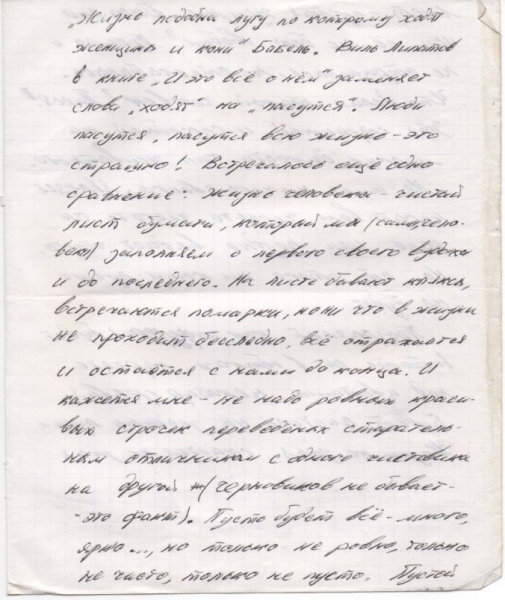 „Жизнь подобна лугу, по которому ходят
женщины и кони" Бабель. Виль Липатов
в книге „И это всё о нём" заменяет
слова „ходят" на „пасутся". Люди
пасутся, пасутся всю жизнь - это
страшно! Встречалось ещё одно
сравнение: жизнь человека чистый
лист бумаги, который мы (сам чело-
век) заполняем с первого своего вздоха
и до последнего. На листе бывают кляксы,
встречаются помарки, но ни что в жизни
не проходит бесследно, всё отражается
и остаётся с нами до конца. И
кажется мне - не надо ровных краси-
вых строчек переведёных старатель-
ным отличником с одного чистовика
на другой (черновиков не бывает-
-это факт). Пусть будет всё - много,
ярко..., но только не ровно, только
не чисто, только не пусто. Пустой